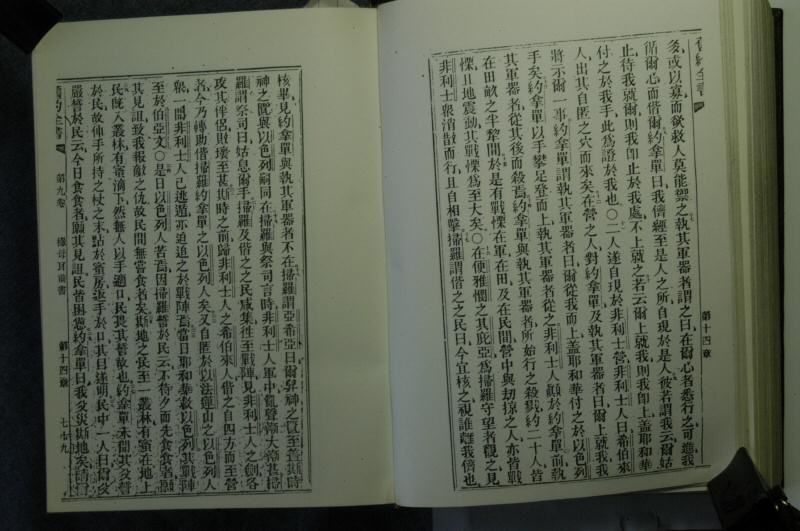 舊約全書
第十四章
多、或以寡而救、人莫能禁之、執其軍器者謂之曰、在爾心者悉行之、可進、我
偕爾心而偕爾、約拿單曰、我儕經至是人之所、自現於是人、彼若謂我云、爾姑
止待我就爾、則我卽止於我處、不上就之、若云、爾上就我、則我卽上、蓋耶和華
付之於我手、此爲證於我也、〇二人遂自現於非利士營、非利士人曰、希伯來
人出其自匿之穴而來矣、在營之人對約拿單及執其軍器者曰、爾上就我、我
將示爾一事、約拿單謂執其軍器者曰、爾從我而上、蓋耶和華付之於以色列
手矣、約拿單以手攀足登而上、執其軍器者從之、非利士人顚於約拿單前、執
其軍器者從其後而殺焉、約拿單與執其軍器者所始行之殺戮、約二十人、皆
在田畝之半犂間、於是有戰慄在軍在田、及在民間、營中與刦掠之人、亦皆戰
慄、且地震動、其戰慄爲至大矣、〇在便雅憫之其庇亞、爲掃羅守望者觀之、見
非利士衆消散而行、且自相擊、掃羅謂偕之之民曰、今宜核之、視誰離我儕也、
核畢、見約拿單與執其軍器者不在、掃羅謂亞希亞曰、爾舁神之匱至、蓋斯時
神之匱與以色列嗣同在、掃羅與祭司言時、非利士人軍中亂聲漸大漸甚、掃
羅謂祭司曰、姑息爾手、掃羅及偕之之民咸集、往至戰陣、見非利士人之劍、各
攻其伴侶、敗壞至甚、斯時之前、歸非利士人之希伯來人、偕之自四方而至營
者、今乃轉助偕掃羅約拿單之以色列人矣、又自匿於以法蓮山之以色列人
衆、一聞非利士人已逃遁、亦迫追之於戰陣焉、當日耶和華救以色列、其戰陣
至於伯亞文、〇是日以色列人苦焉、因掃羅誓於民云、不待夕而先食食者、願
其見詛、致我報敵之仇、故民間無嘗食者矣、斯地之衆至一叢林、有蜜在地上、
民旣入叢林、有蜜滴下、然無人以手適口、民畏其誓故也、約拿單未聞其父誓
於民、故伸手所持之杖之末、蘸於蜜房、返手於口、其目遂明、民中一人曰、爾父
嚴誓於民云、今日食食者、願其見詛、民皆困憊、約拿單曰、我父災斯地矣、
舊約全書
第九卷
撒母耳前書
第十四章
七百七九